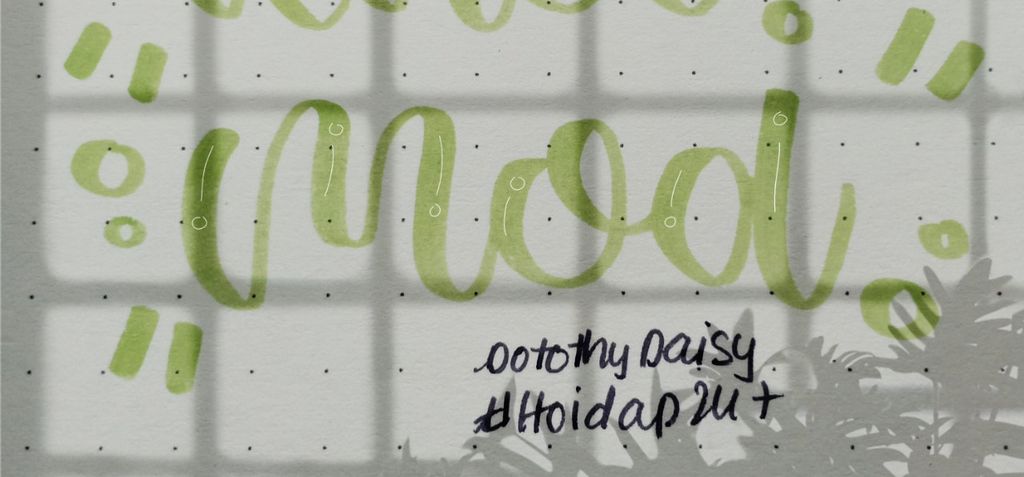 mod
Dotothy Daisy
#Hoidap24+